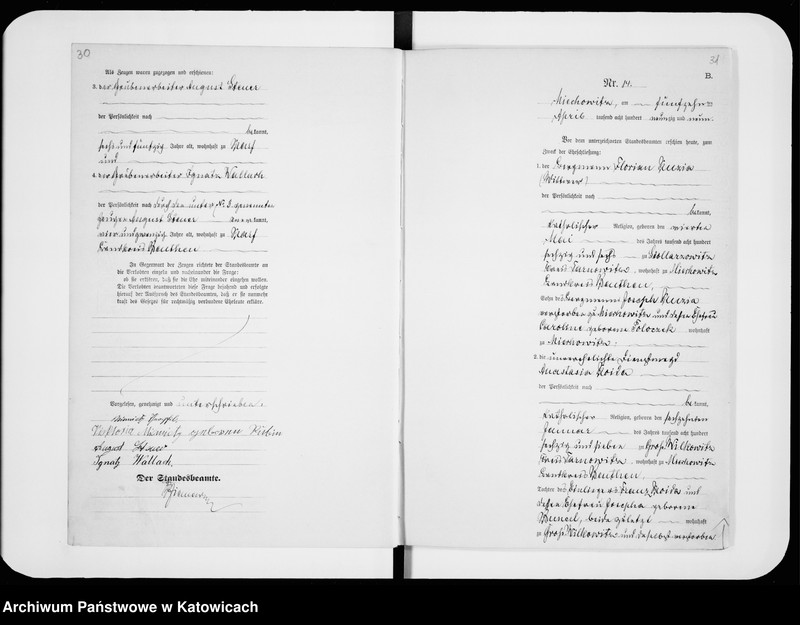 30
Als Zeugen waren zugezogen und erschienen:
3. der Grubenarbeiter August Stener
der Persönlichkeit nach
bekannt,
sechs und fünfzig Jahre alt, wohnhaft zu Karf
und
4. der Grubenarbeiter Ignatz Wallach
der Persönlichkeit nach durch den unter No 3. genannten
Zeugen August Stener anerkannt,
vier und zwanzig Jahre alt, wohnhaft zu Karf
Landkreis Beuthen
In Gegenwart der Zeugen richtete der Standesbeamte an
die Verlobten einzeln und nacheinander die Frage:
ob sie erklären, daß sie die Ehe miteinander eingehen wollen.
Die Verlobten beantworteten diese Frage bejahend und erfolgte
hierauf der Ausspruch des Standesbeamten, daß er sie nunmehr
kraft des Gesetzes für rechtmäßig verbundene Eheleute erkläre.
Vorgelesen, genehmigt und unterschrieben.
geborene
August
Ignatz Wallach
Der Standesbeamte.
31
B.
Nr. 14.
Miechowitz, am fünfzehnten
April tausend acht hundert neunzig und neun.
Vor dem unterzeichneten Standesbeamten erschien heute, zum
Zweck der Eheschließung:
1. der Bergmann Florian Kuzia
(Wittwer)
der Persönlichkeit nach
bekannt,
katholischer Religion, geboren den vierten
Mai des Jahres tausend acht hundert
sechzig und sechs zu Stollarzowitz
Kreis Tarnowitz, wohnhaft zu Miechowitz
Landkreis Beuthen,
Sohn des Bergmanns Joseph Kuzia
verstorben zu Miechowitz und dessen Ehefrau
Caroline geborene wohnhaft
zu Miechowitz.
2. die unverehelichte Dienstmagd
Anastasia
der Persönlichkeit nach
bekannt,
katholischer Religion, geboren den
Januar des Jahres tausend acht hundert
sechzig und sieben zu Groß Wilkowitz
Kreis Tarnowitz, wohnhaft zu Miechowitz
Landkreis Beuthen,
Tochter des Einliegers Franz und
dessen Ehefrau Josepha geborene
beide zuletzt wohnhaft
zu Groß Wilkowitz und daselbst verstorben
Archiwum Państwowe w Katowicach